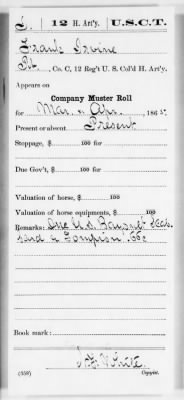 I. 12 H. Art'y. U.S.C.T.
Frank Irvine
Pvt., Co. C, 12 Reg't U. S. Col'd H. Art'y.
Appears on
Company Muster Roll
for Mar. & Apr., 1865.
Present or absent Present
Stoppage, $ 100 for
Due Gov't, $ 100 for
Valuation of horse, $ 100
Valuation of horse equipments, $ 100
Remarks: Due U.S. Bayonet Scab-
bard &
Book mark:
(358) Copyist.